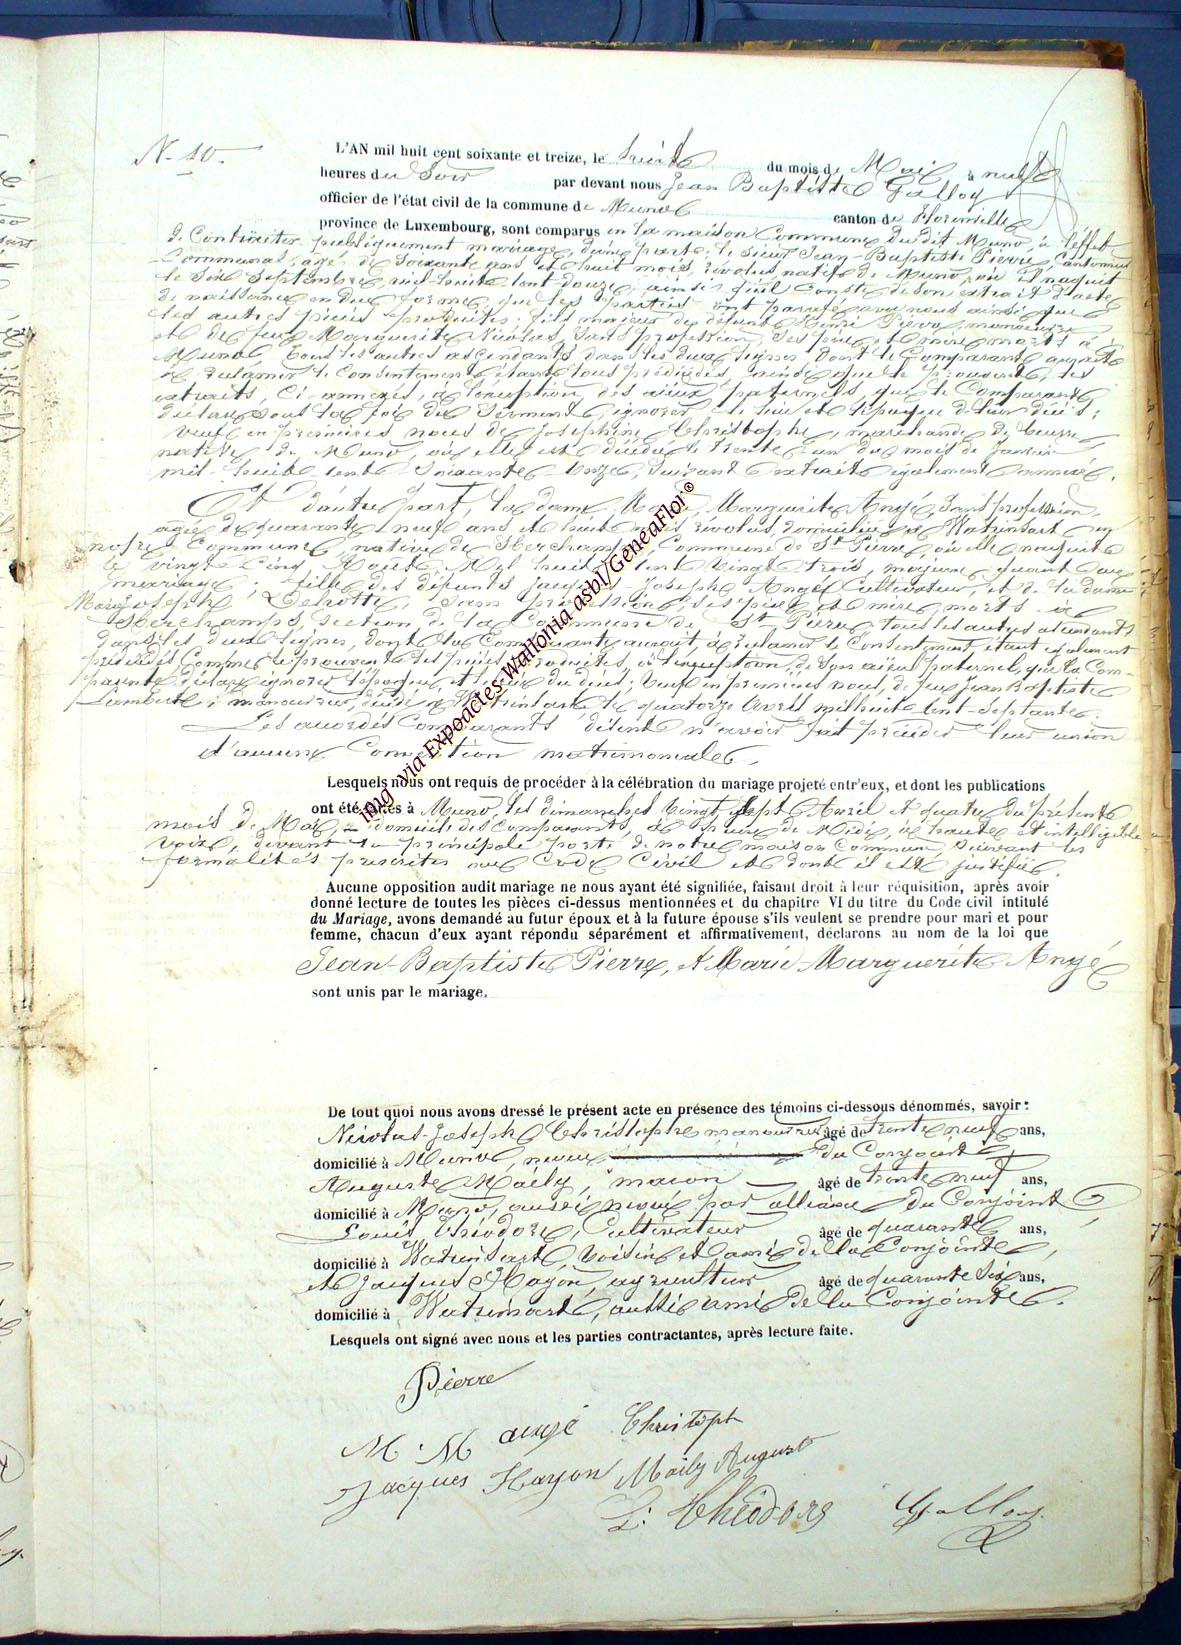 N. 10.
L'AN mil huit cent soixante et treize, le trente du mois de Mai, à neuf
heures du Soir par devant nous Jean Baptiste Galloy
officier de l'état civil de la commune de Muno canton de Florenville
province de Luxembourg, sont comparus en la maison Commune du dit Muno, à l'effet
de Contracter publiquement mariage, d'une part: le sieur Jean-Baptiste Pierre, Cantonnier
Communal, agé de Soixante ans et huit mois, révolus, natif de Muno, où il naquit
le Six Septembre mil-huit-cent-douze, ainsi qu'il conste de son extrait d'acte
de naissance en due forme, que les parties ont parafé avec nous ainsi que
les autres pièces produites; fils majeur de défunt Pierre, manoeuvre
et de feue Marguerite Nicolas, Sans profession, Ses père et mère morts à
Muno, tous les autres ascendants dans les deux lignes dont le Comparant aurait
à réclamer le Consentement étant tous prédécédés ainsi que le prouvent les
extraits, Ci-annexés, à l'exception des aïeux paternels, que le Comparant
déclare sous la foi du Serment, ignorer le lieu et l'époque de leur décès;
veuf en premières noces de Joséphine Christophe, marchande de beurre,
native de Muno, où elle est décédée le trente-un du mois de Janvier
mil-huit-cent-Soixante-onze, Suivant extrait également annexé.
Et d'autre part, la dame Marie Marguerite Angé, Sans profession,
agée de quarante neuf ans et huit mois, révolus, domiciliée à Watrinsart en
notre Commune, native de Herchamps, Commune de St Pierre, où elle naquit
le vingt Cinq Août, Mil huit cent vingt trois, majeure quant au
mariage; fille des défunts Jacques-Joseph Angé Cultivateur, et de la dame
Marie Joseph Delrotte, Sans profession, Ses père et mère, morts à
Herchamps, section de la Commune de St Pierre, tous les autres ascendants
dans les deux lignes, dont la Comparante aurait à réclamer le Consentement, étant également
prédécédés Comme le prouvent les pièces produites, à l'exception de son aïeul paternel, que la Com-
parante déclare ignorer l'époque et lieu du décès; Veuve en premières noces, de feu Jean Baptiste
Lambert, manoeuvre, décédé à Watrinsart le quatorze Avril mil huit cent-septante.
Les accordés Comparants disent n'avoir fait précéder leur union
d'aucune Convention matrimoniale.
Lesquels nous ont requis de procéder à la célébration du mariage projeté entr'eux, et dont les publications
ont été faites à Muno, les dimanches Vingt Sept Avril et quatre du présent
mois de Mai, domicile des Comparants, à heure de Midi, à haute et intelligible
voix, devant la principale porte de notre maison Commune Suivant les
formalités prescrites au Code Civil et dont il est justifié.
Aucune opposition audit mariage ne nous ayant été signifiée, faisant droit à leur réquisition, après avoir
donné lecture de toutes les pièces ci-dessus mentionnées et du chapitre VI du titre du Code civil intitulé
du Mariage, avons demandé au futur époux et à la future épouse s'ils veulent se prendre pour mari et pour
femme, chacun d'eux ayant répondu séparément et affirmativement, déclarons au nom de la loi que
Jean-Baptiste Pierre, et Marie-Marguerite Angé
sont unis par le mariage.
De tout quoi nous avons dressé le présent acte en présence des témoins ci-dessous dénommés, savoir:
Nicolas-Joseph Christophe manoeuvre âgé de trente neuf ans,
domicilié à Muno, neveu du Conjoint,
Auguste Maily, maçon âgé de trente neuf ans,
domicilié à Muno, aussi neveu par alliance du Conjoint
Louis Théodore, Cultivateur âgé de quarante ans,
domicilié à Watrinsart, Voisin et ami de la Conjointe,
et Jacques Hayon, agriculteur âgé de quarante Six ans,
domicilié à Watrinsart, aussi ami de la Conjointe.
Lesquels ont signé avec nous et les parties contractantes, après lecture faite.
Pierre
M. M angé Christoph
Jacques Hayon Maily August
L. Théodore Galloy
img via Expoactes-Wallonia asbl/GeneaFlor®